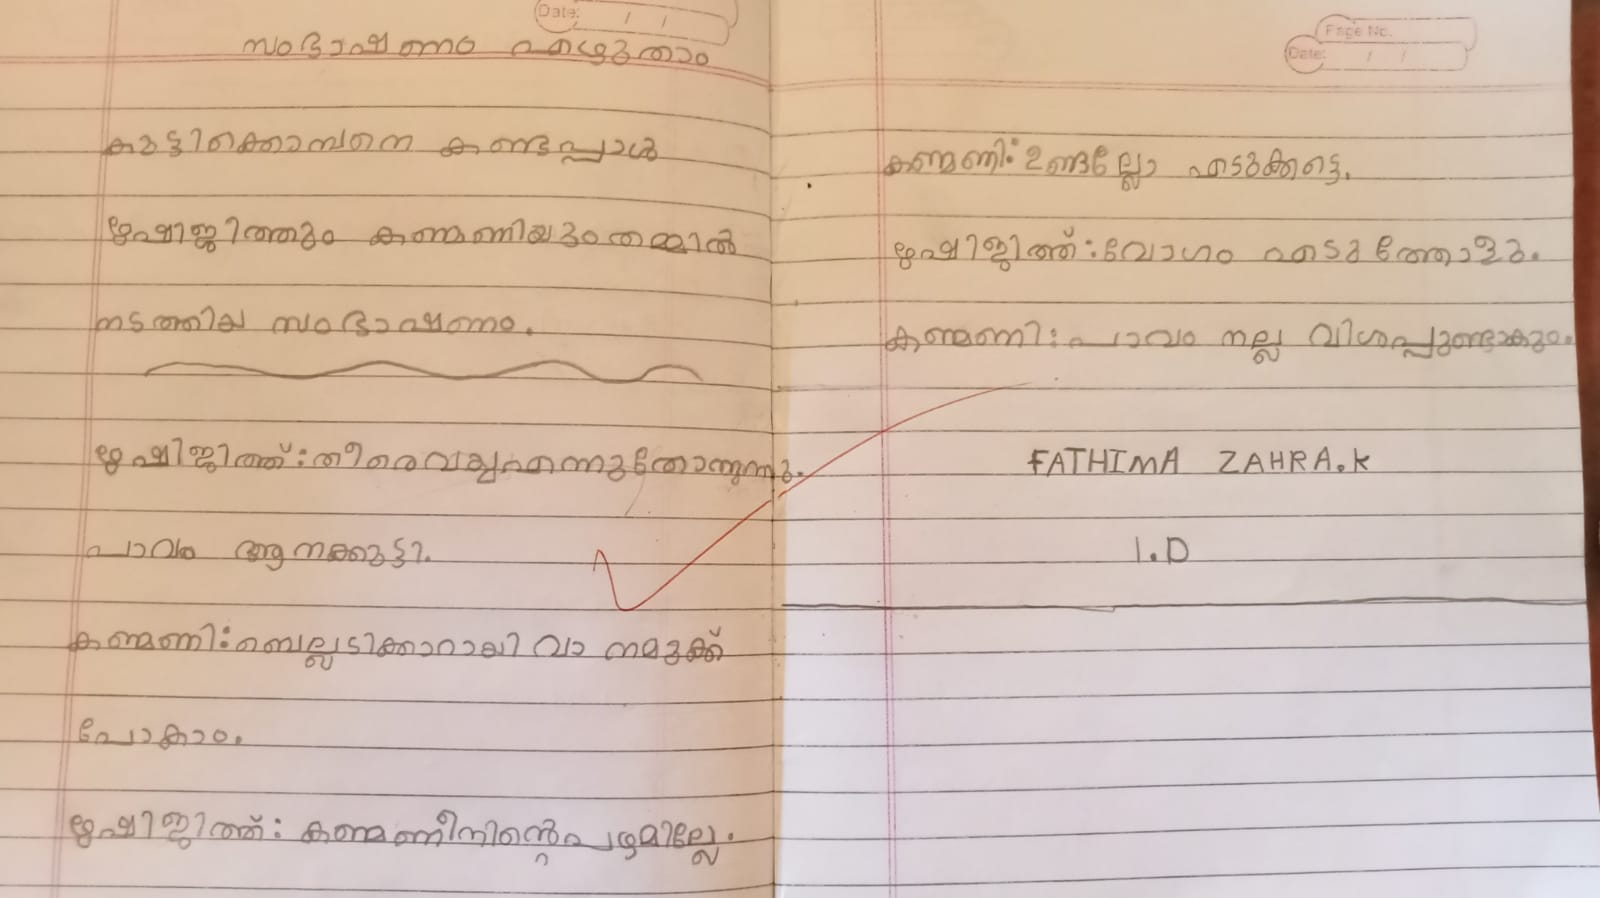 Date: / /
സംഭാഷണം എഴുതാം
കുട്ടിക്കൊമ്പനെ കണ്ടപ്പോൾ
കണ്മണിയും തമ്മിൽ
നടത്തിയ സംഭാഷണം.
തീരെവയ്യഎന്നുതോന്നുന്നു.
പാവം ആനക്കുട്ടി.
കണ്മണി: ബെല്ലടിക്കാറായി വാ നമുക്ക്
പോകാം.
കണ്മണീനിന്റെപഴമില്ലേ.
Page No.
Date: / /
കണ്മണി: ഉണ്ടല്ലോ എടുക്കട്ടെ.
വേഗം എടുത്തോളു.
കണ്മണി: പാവം നല്ല വിശപ്പുണ്ടാകും.
FATHIMA ZAHRA.K
1.D